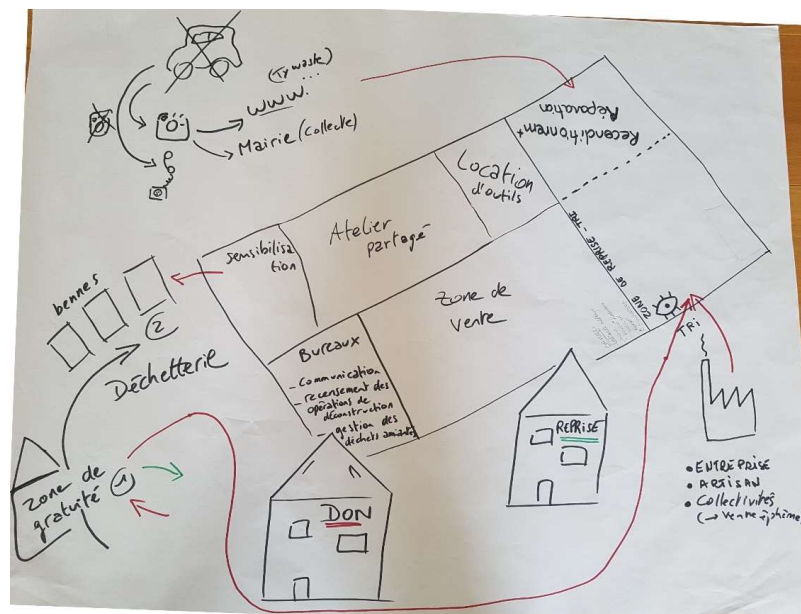 (Ty waste)
WWW. ...
Mairie (Collecte)
Reconditionnemt
Réparation
Location
d'outils
Atelier
partagé
sensibilisa
tion
bennes
2
Déchetterie
zone de
vente
ZONE DE REPRISE - TRI
TRi
Bureaux
- Communication
- recensement des
opérations de
déconstruction
- gestion des
déchets amiantés
REPRISE
DON
zone de
gratuité
1
• ENTREPRISE
• ARTISAN
• Collectivités
(→ vente éphémè